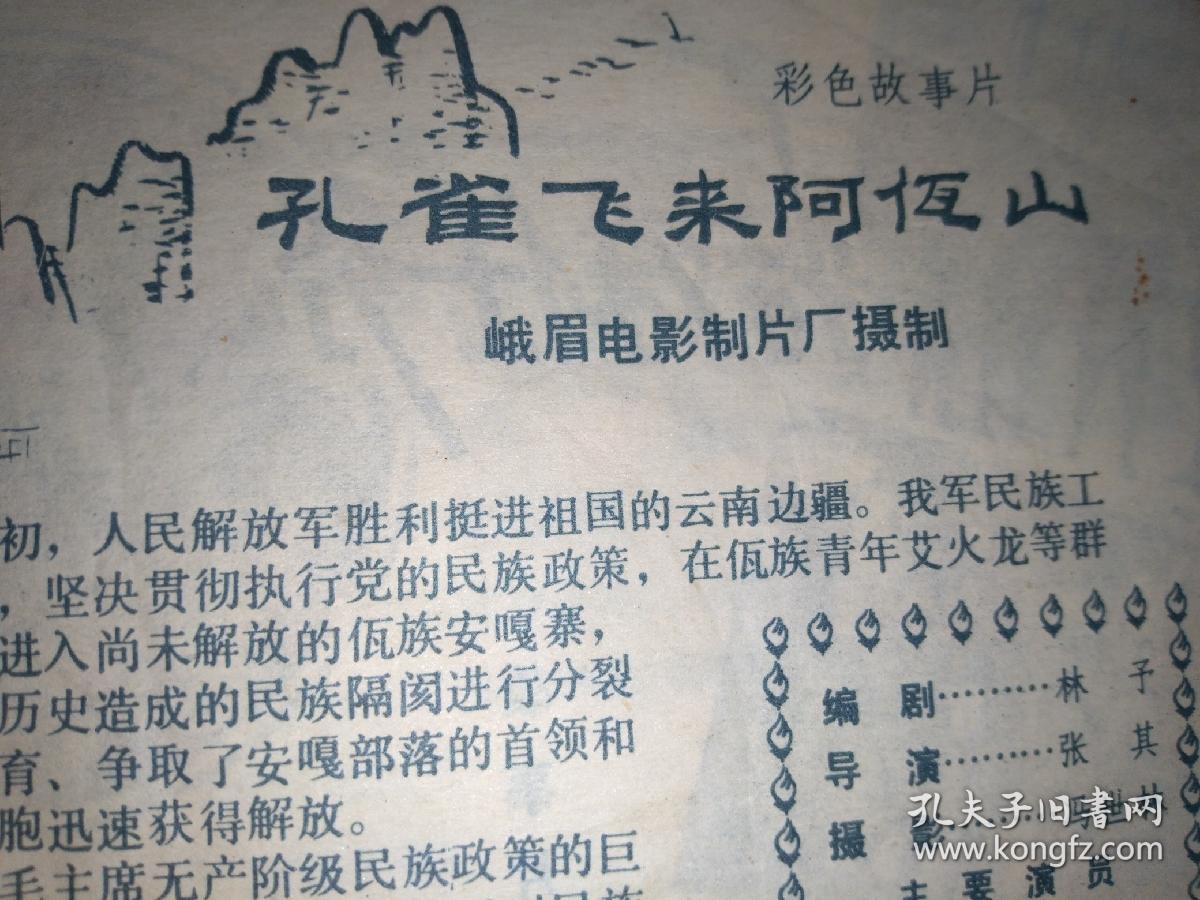 彩色故事片
孔雀飞来阿佤山
峨眉电影制片厂摄制
初，人民解放军胜利挺进祖国的云南边疆。我军民族工
，坚决贯彻执行党的民族政策，在佤族青年艾火龙等群
进入尚未解放的佤族安嘎寨，
历史造成的民族隔阂进行分裂
育、争取了安嘎部落的首领和
胞迅速获得解放。
毛主席无产阶级民族政策的巨
编剧………林子
导演………张其
摄影………
主要演员
孔夫子旧书网
www.kongfz.com